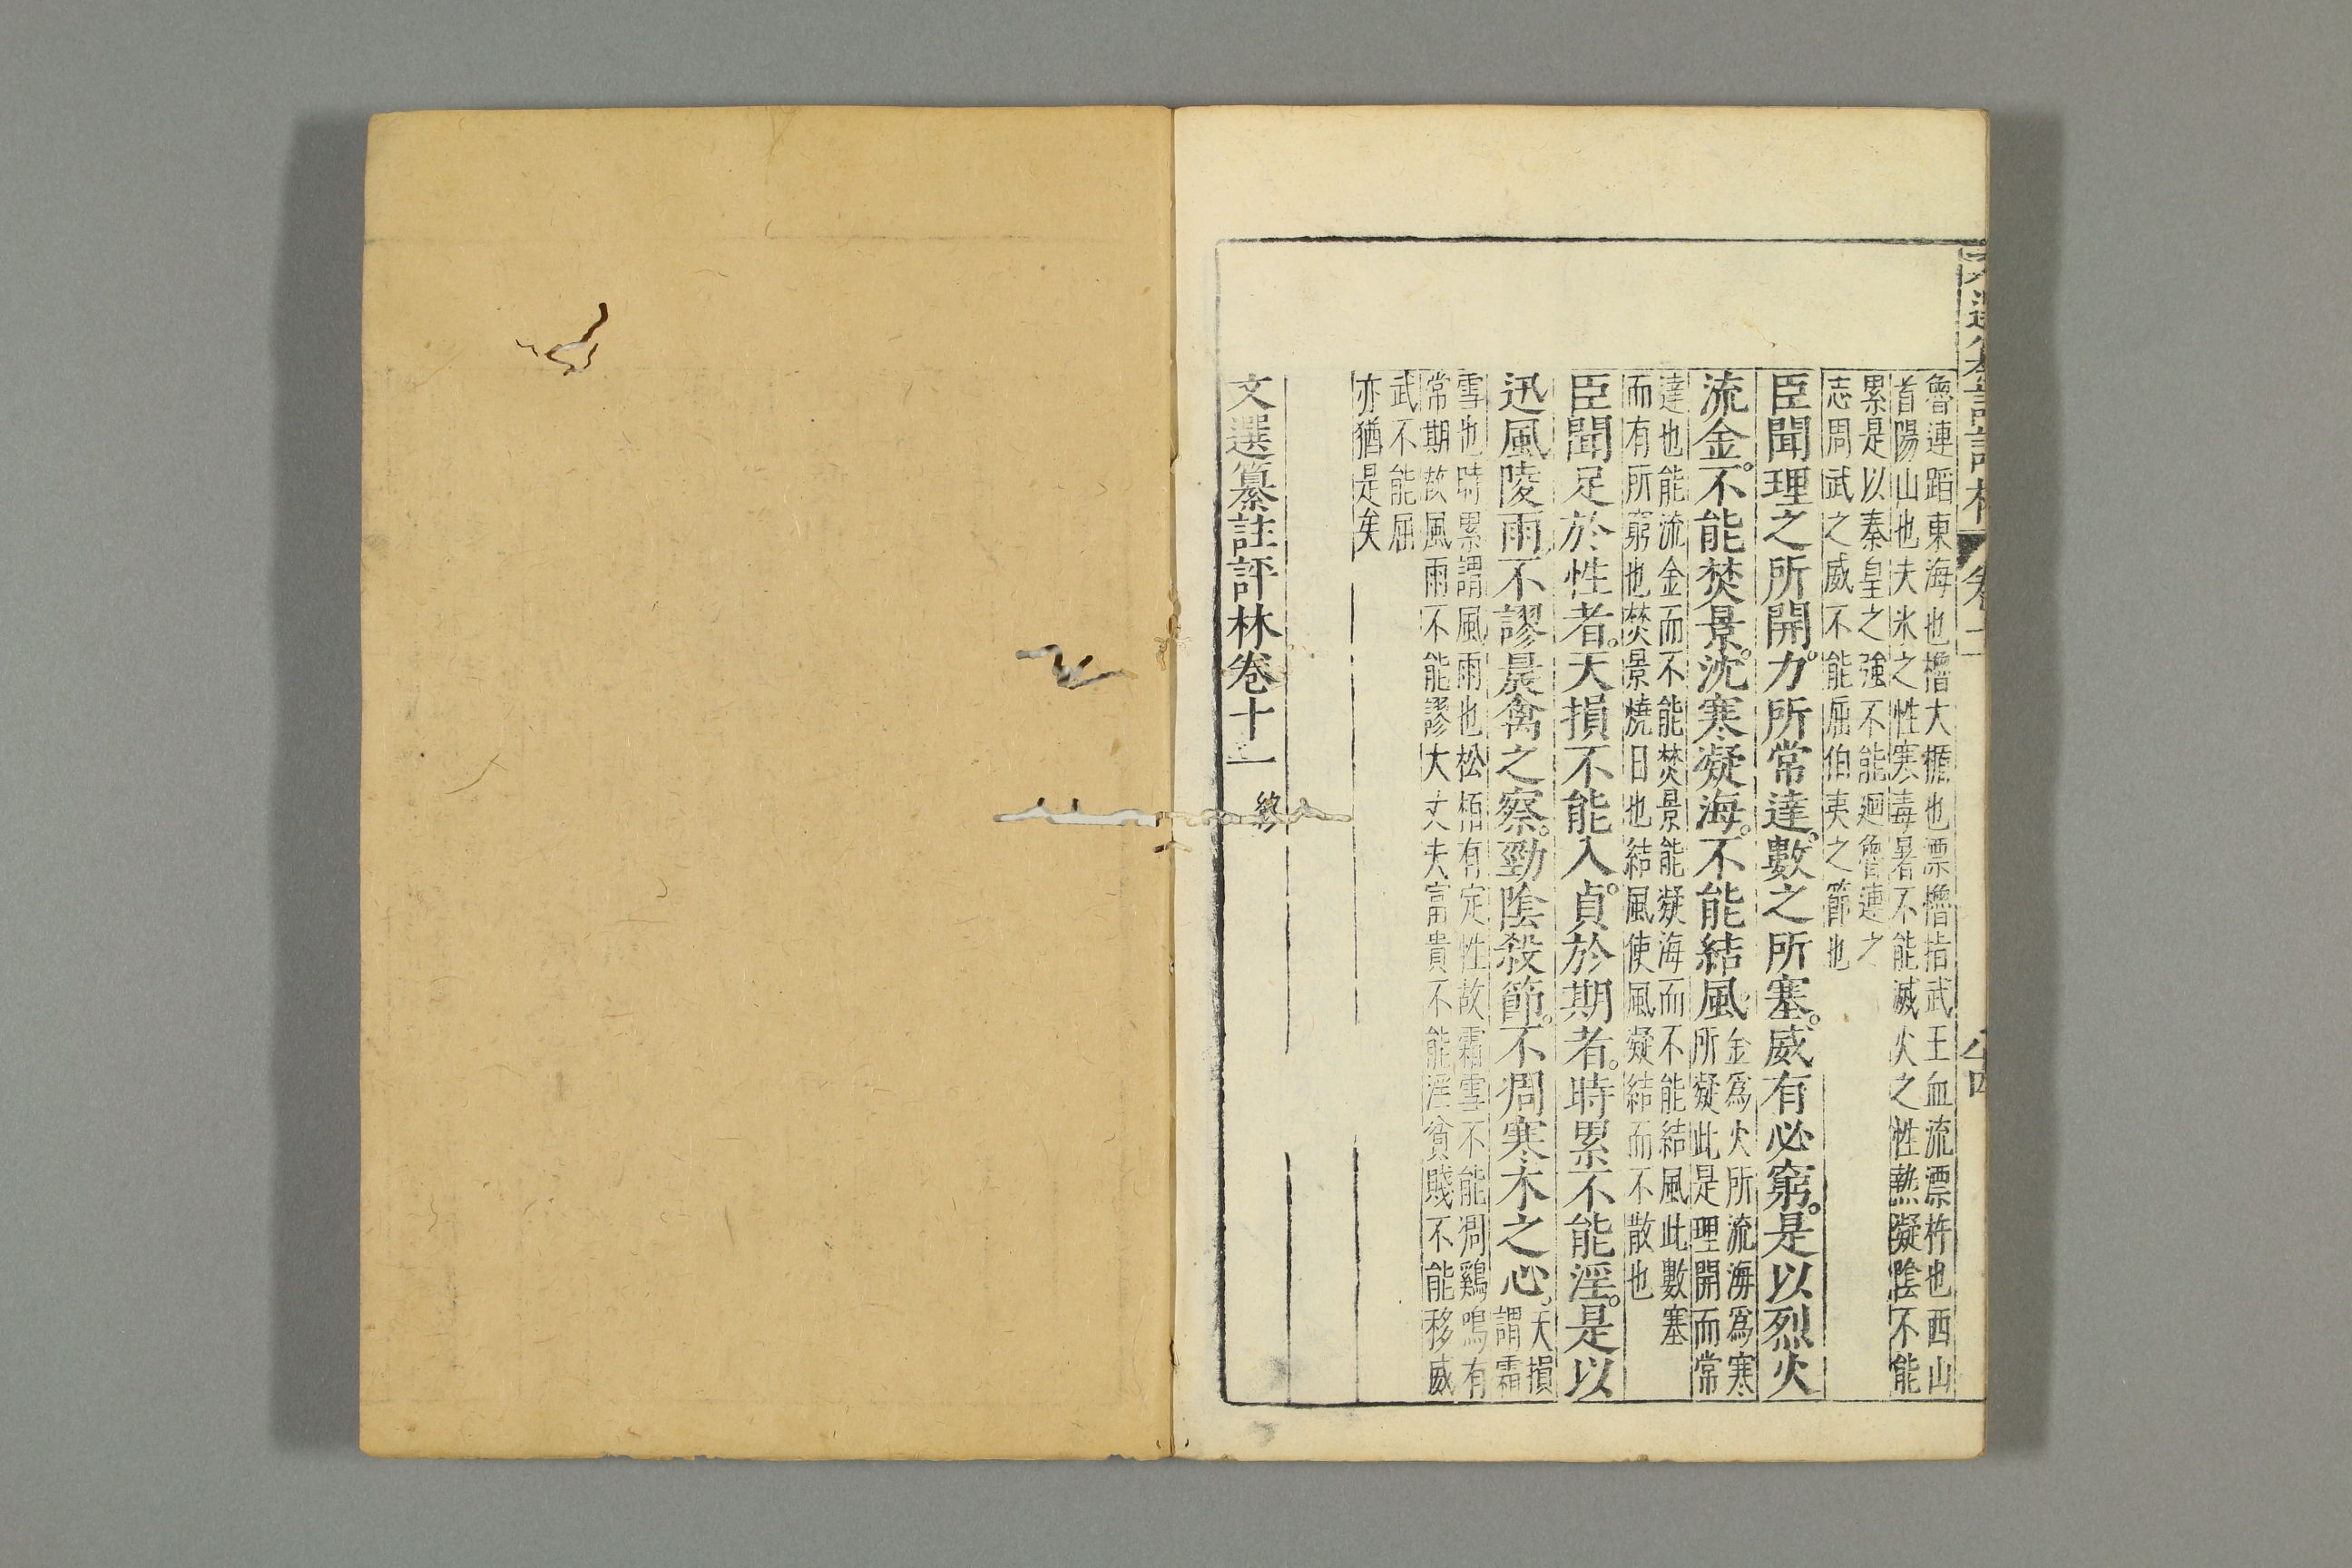 魯連蹈東海也櫓大楯也漂櫓指武王血流漂杵也西山
首陽山也夫氷之性寒毒暑不能滅火之性熱凝陰不能
累是以秦皇之強不能廻魯連之
志周武之威不能屈伯夷之節也
臣聞理之所開力所常達數之所塞威有必窮是以烈火
流金不能焚景沈寒凝海不能結風
金爲火所流海爲寒
所凝此是理開而常
達也能流金而不能焚景能凝海而不能結風此數塞
而有所窮也焚景燒日也結風使風凝結而不散也
臣聞足於性者天損不能入貞於期者時累不能淫是以
迅風陵雨不謬晨禽之察勁陰殺節不凋寒木之心
天損
謂霜
雪也時累謂風雨也松栢有定性故霜雪不能凋鷄鳴有
常期故風雨不能謬大丈夫富貴不能淫貧賤不能移威
武不能屈
亦猶是矣
文選纂註評林卷十一 終